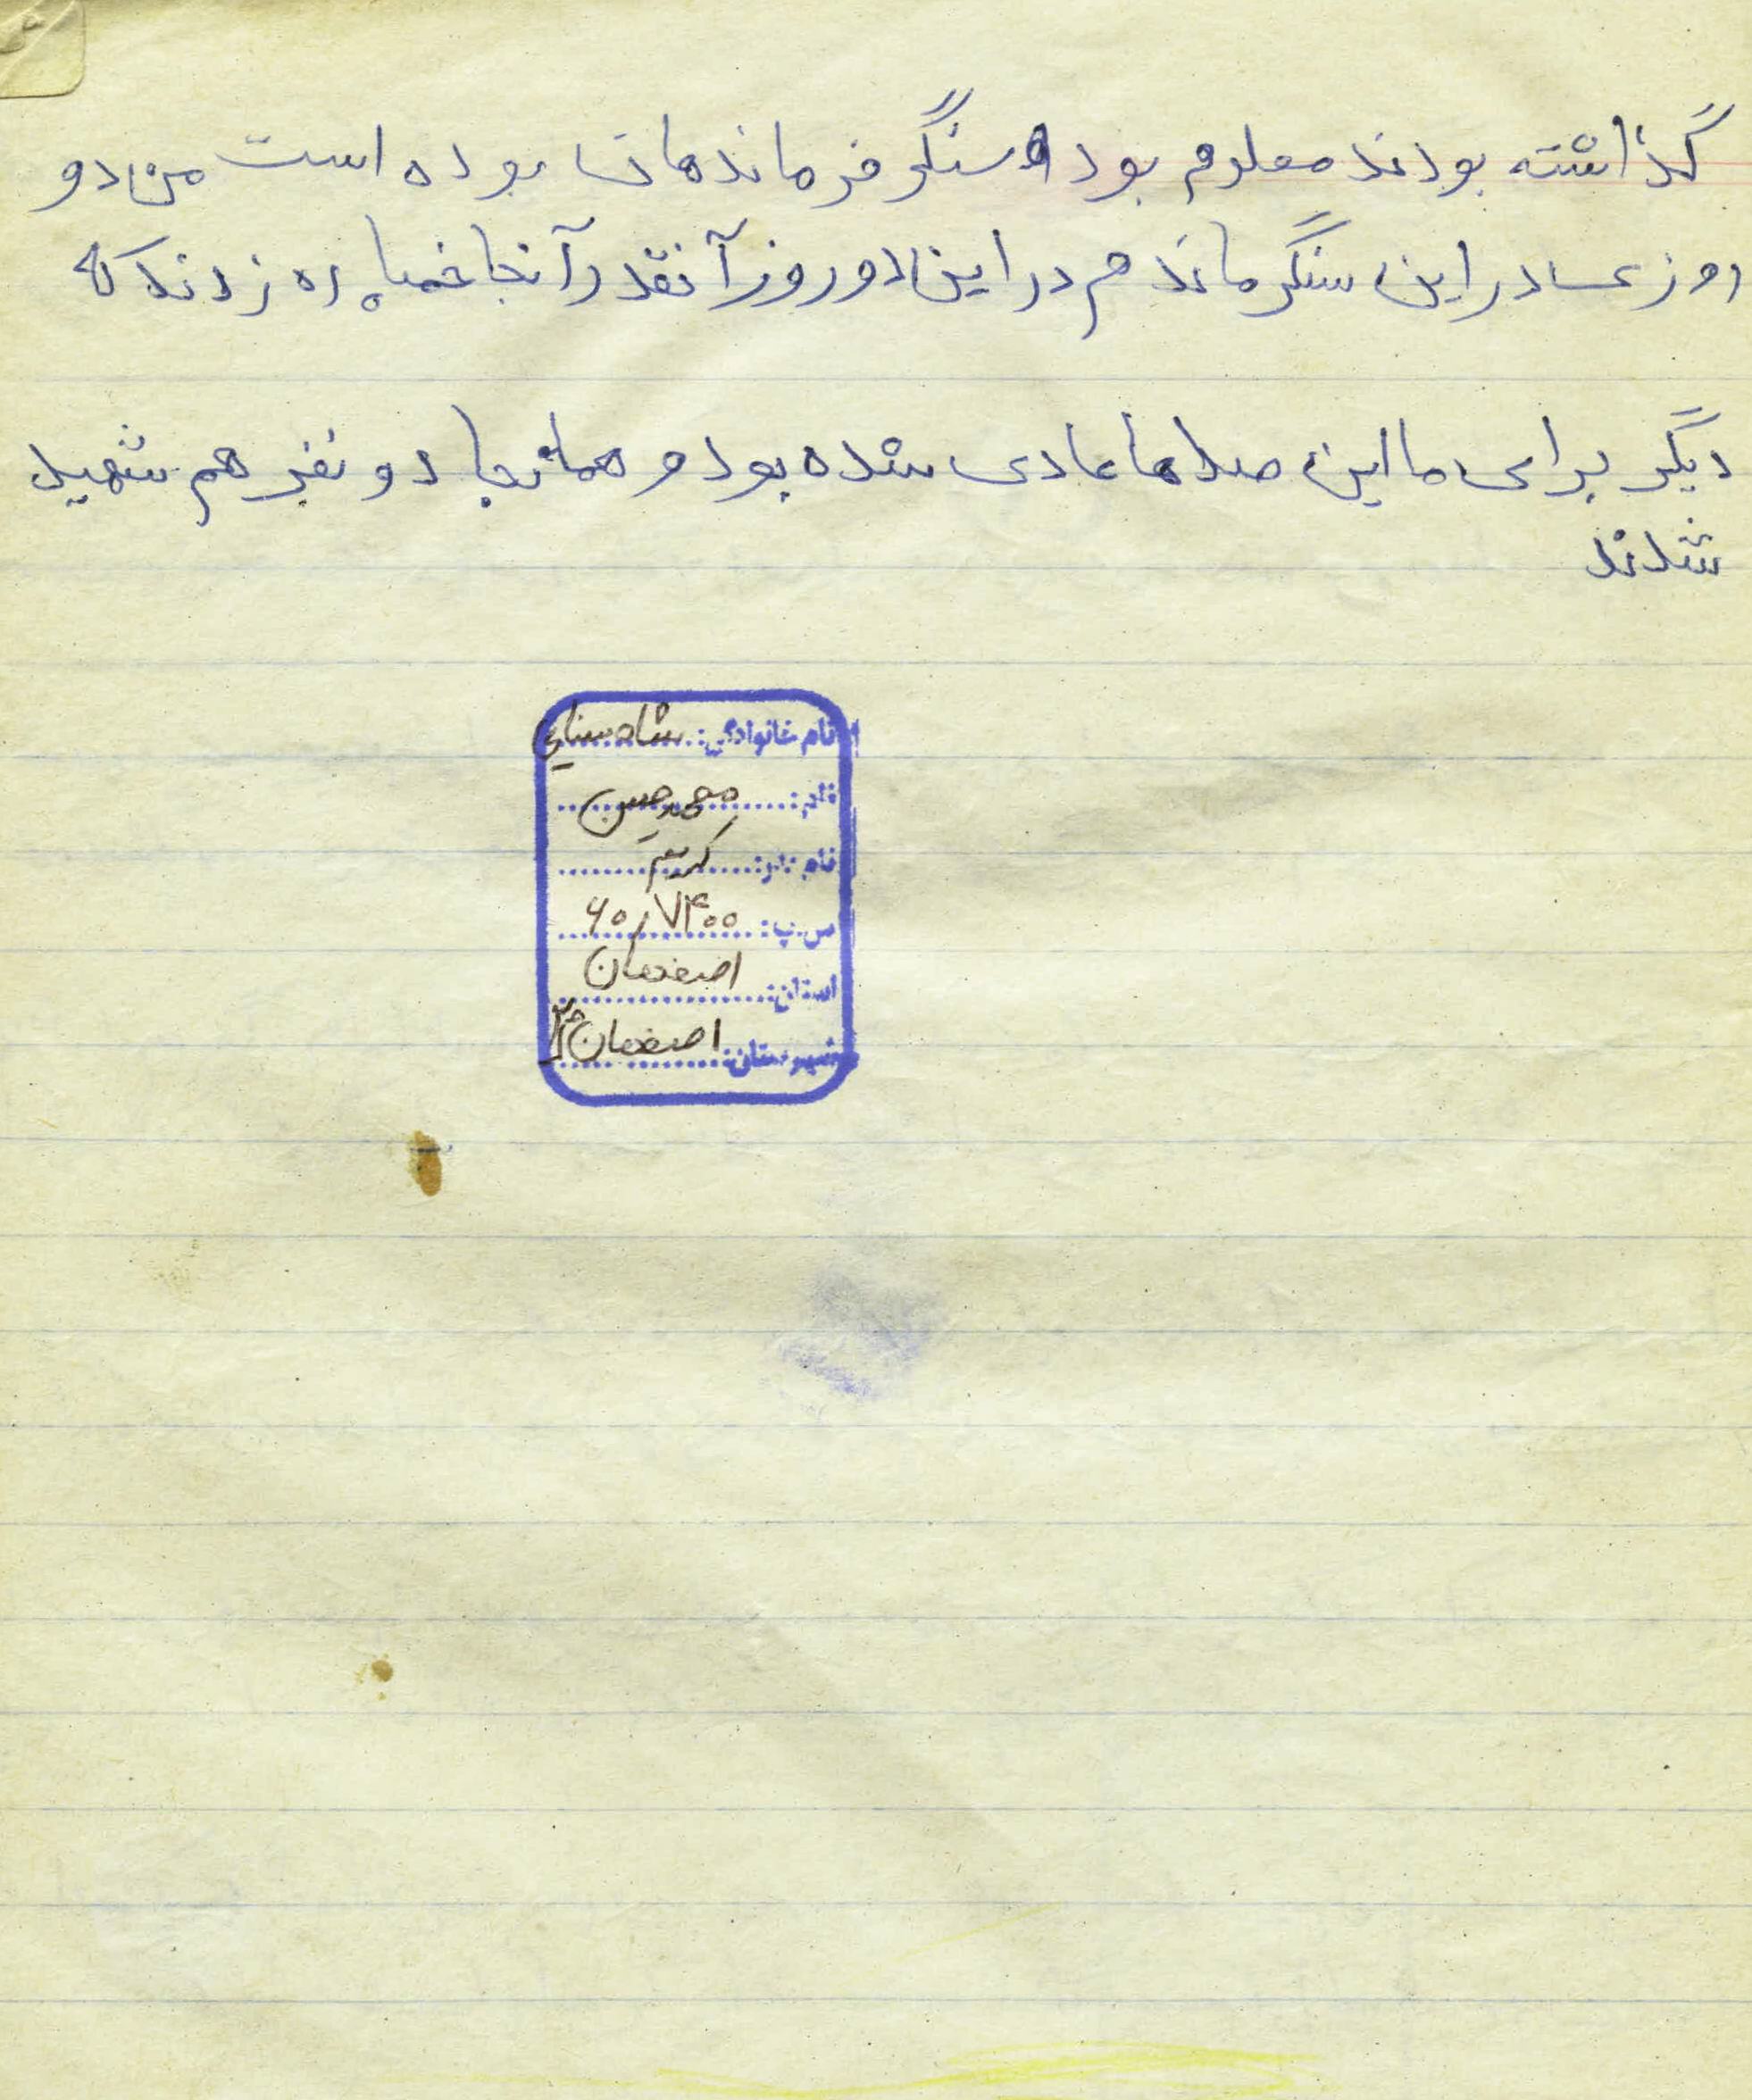 گذاشته بودند معلوم بود سنگر فرماندهان بوده است من دو
روزی در این سنگر ماندم در این دو روز آنقدر آنجا خمپاره زدند که
دیگر برای ما این صداها عادی شده بود و همانجا دو نفر هم شهید
شدند
نام خانوادگی: شاه سنایی
نام: محمدحسین
نام پدر: کریم
ش.پ: ۶۰/۷۴۰۰
استان: اصفهان
شهرستان: اصفهان